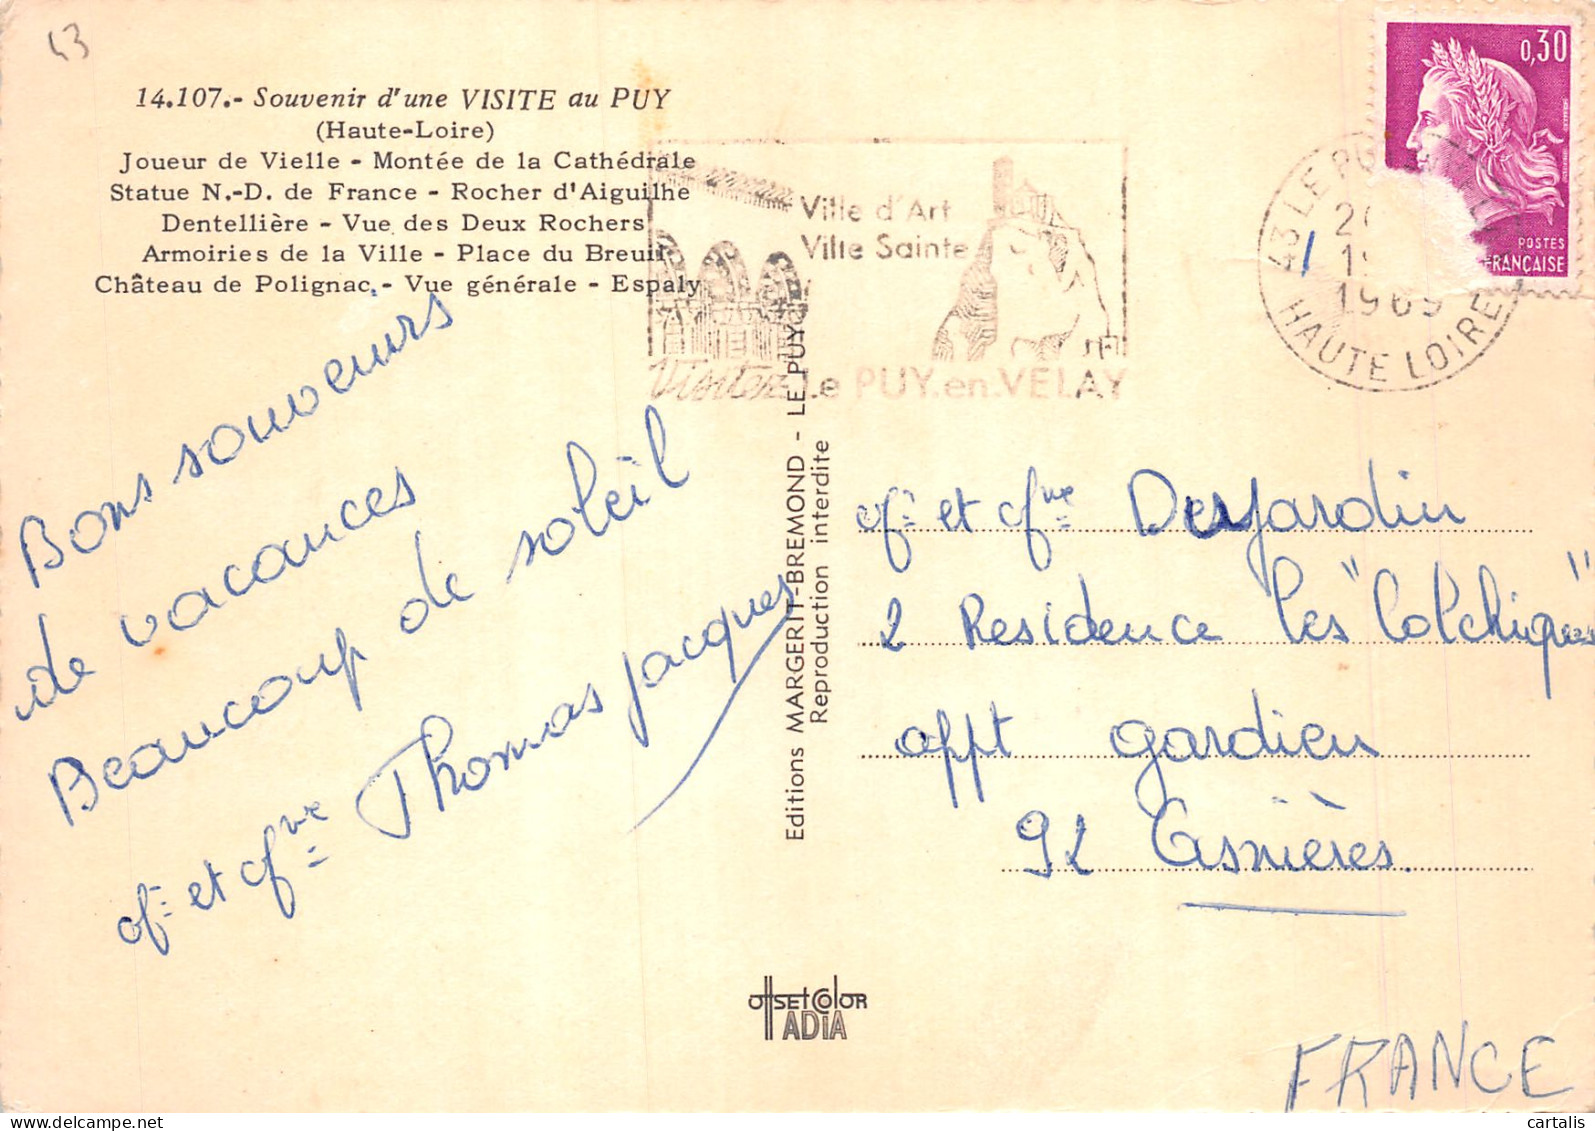 43
14.107.- Souvenir d'une VISITE au PUY
(Haute-Loire)
Joueur de Vielle - Montée de la Cathédrale
Statue N.-D. de France - Rocher d'Aiguilhe
Dentellière - Vue des Deux Rochers
Armoiries de la Ville - Place du Breuil
Château de Polignac.- Vue générale - Espaly
Ville d'Art
Ville Sainte
Visitez Le PUY.en.VELAY
43 LE PUY
1969
HAUTE LOIRE
0,30
POSTES
FRANÇAISE
Bons souvenirs
de vacances
Beaucoup de soleil
et Thomas Jacques
Editions MARGERIT-BREMOND - LE PUY
Reproduction interdite
et Desjardin
2 Residence les "Colchiques"
appt gardien
92 Asnières
OffSET COLOR
ADIA
FRANCE
cartalis | delcampe.net